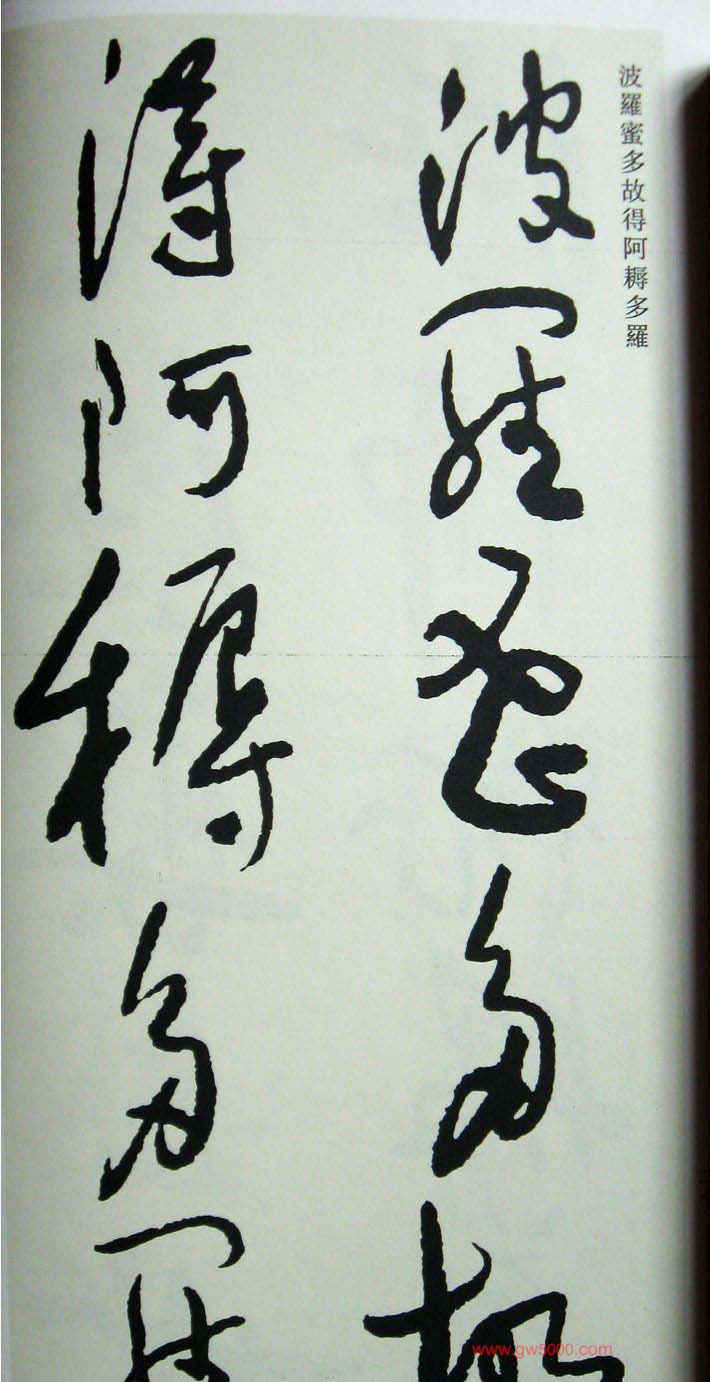 波羅蜜多故得阿耨多羅
波羅蜜多故
得阿耨多羅
www.gw5000.com